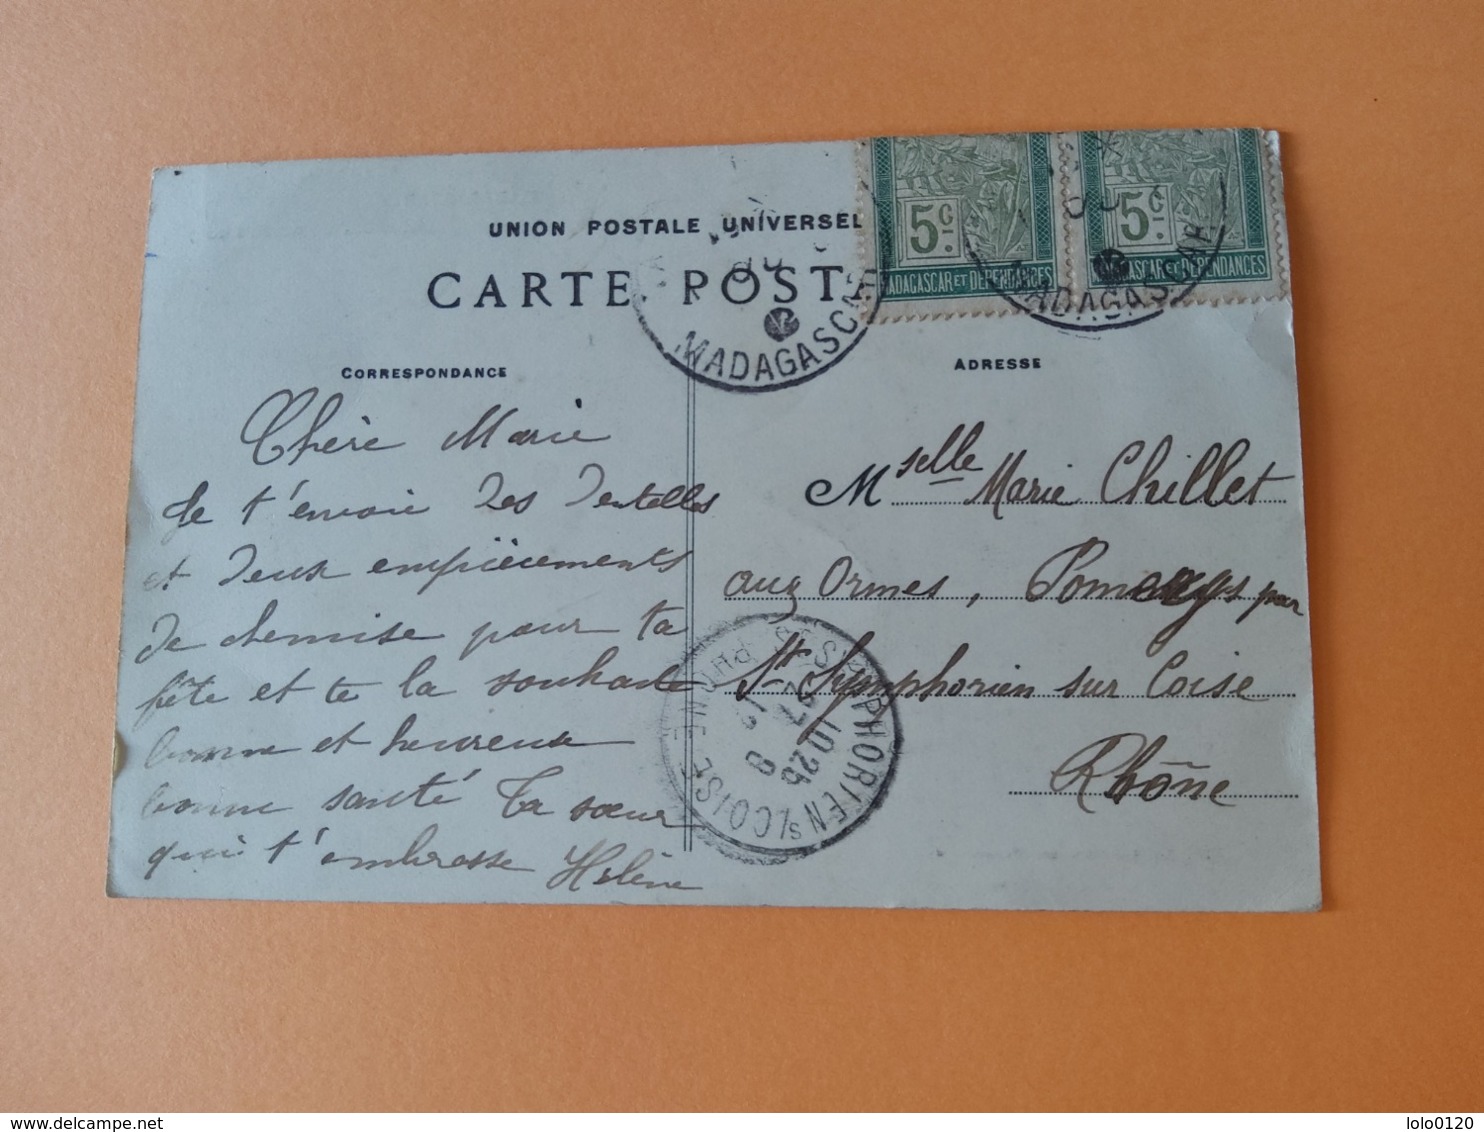 UNION POSTALE UNIVERSEL
CARTE POST
5c.
MADAGASCAR ET DÉPENDANCES
5c.
MADAGASCAR ET DÉPENDANCES
MADAGASCAR
MADAGASCAR
CORRESPONDANCE
ADRESSE
Chère Marie
Je t'envoie des dentelles
et deux empiècements
de chemise pour ta
fête et te la souhaite
bonne et heureuse
bonne santé Ta sœur
qui t'embrasse Hélène
Mselle Marie Chillet
aux Ormes, Pomeys par
St Symphorien sur Coise
Rhône
ST SYMPHORIEN S/ COISE RHONE
10 25
27
12
lolo0120